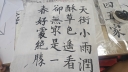 天街小雨潤
酥草色遙看
卻無最是一
春好處絕勝